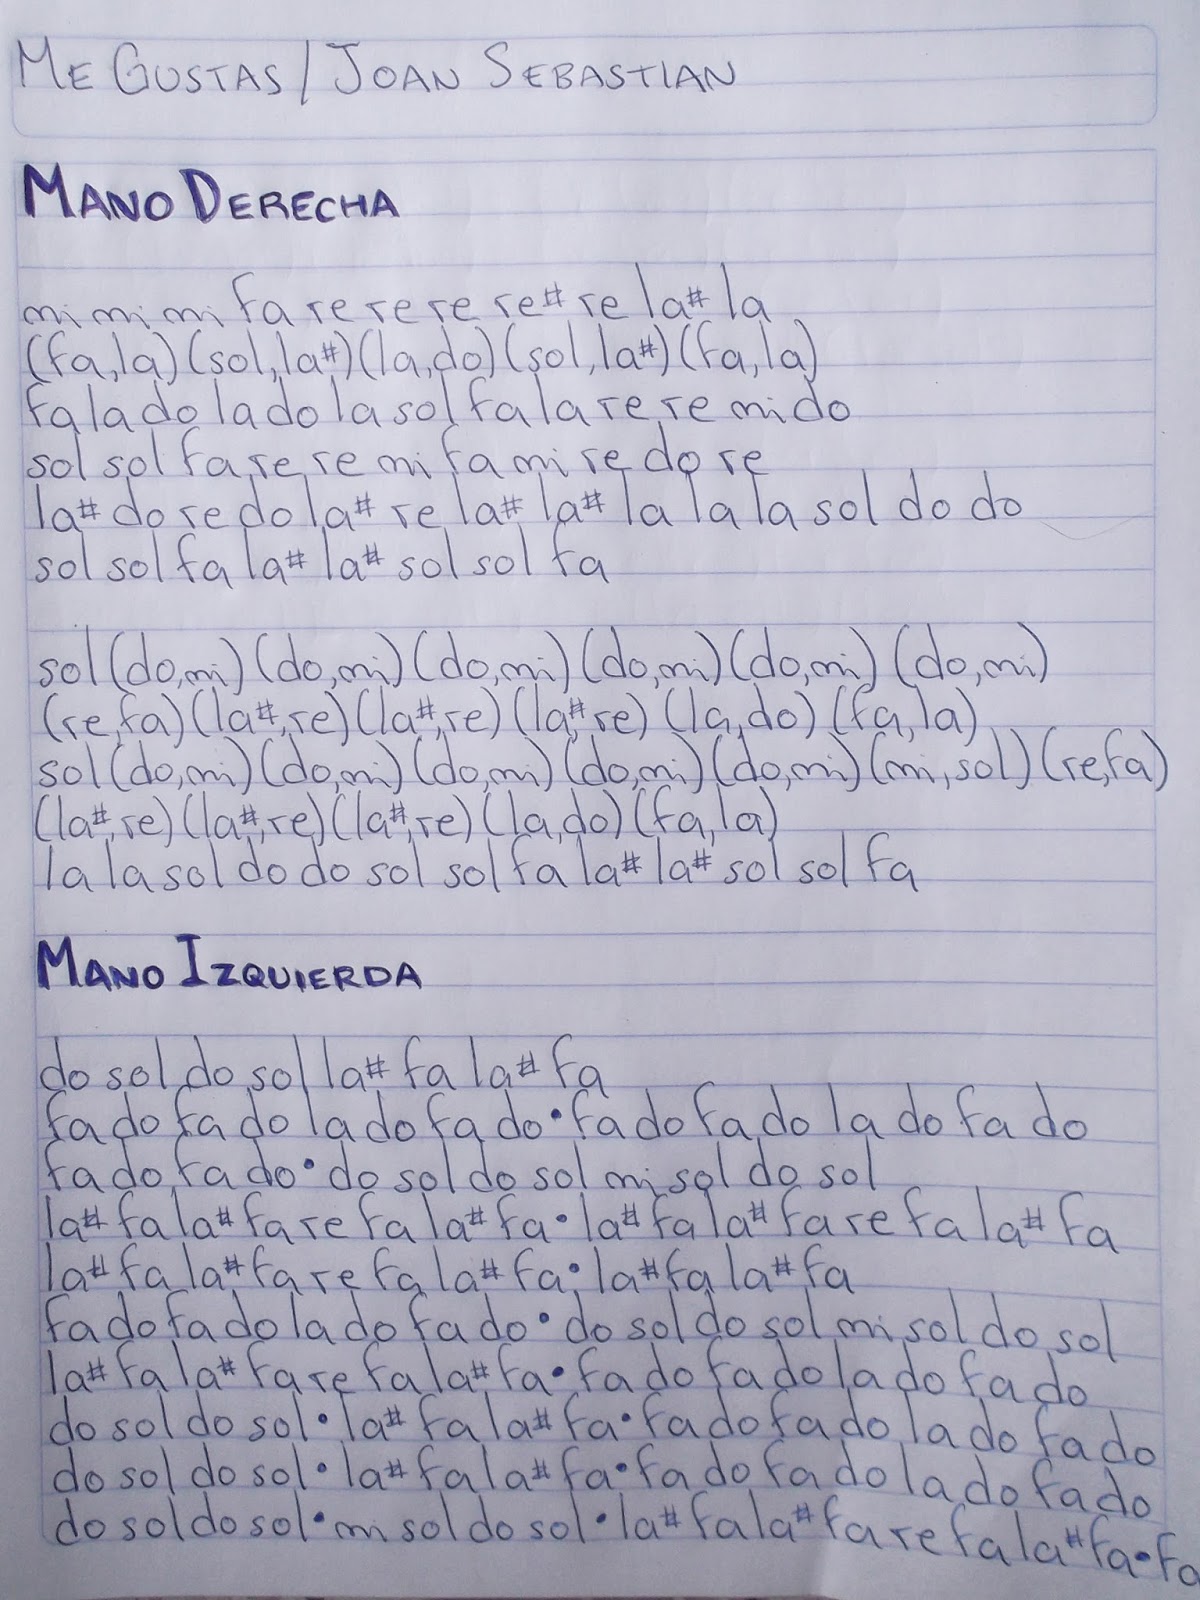 ME GUSTAS / JOAN SEBASTIAN
MANO DERECHA
mi mi mi fa re re re re# re la# la
(fa,la) (sol,la#) (la,do) (sol,la#) (fa,la)
fa la do la do la sol fa la re re mi do
sol sol fa re re mi fa mi re do re
la# do re do la# re la# la# la la la sol do do
sol sol fa la# la# sol sol fa
sol (do,mi) (do,mi) (do,mi) (do,mi) (do,mi) (do,mi)
(re,fa) (la#,re) (la#,re) (la#,re) (la,do) (fa,la)
sol (do,mi) (do,mi) (do,mi) (do,mi) (do,mi) (mi,sol) (re,fa)
(la#,re) (la#,re) (la#,re) (la,do) (fa,la)
la la sol do do sol sol fa la# la# sol sol fa
MANO IZQUIERDA
do sol do sol la# fa la# fa
fa do fa do la do fa do • fa do fa do la do fa do
fa do fa do • do sol do sol mi sol do sol
la# fa la# fa re fa la# fa • la# fa la# fa re fa la# fa
la# fa la# fa re fa la# fa • la# fa la# fa
fa do fa do la do fa do • do sol do sol mi sol do sol
la# fa la# fa re fa la# fa • fa do fa do la do fa do
do sol do sol • la# fa la# fa • fa do fa do la do fa do
do sol do sol • la# fa la# fa • fa do fa do la do fa do
do sol do sol • mi sol do sol • la# fa la# fa re fa la# fa • fa